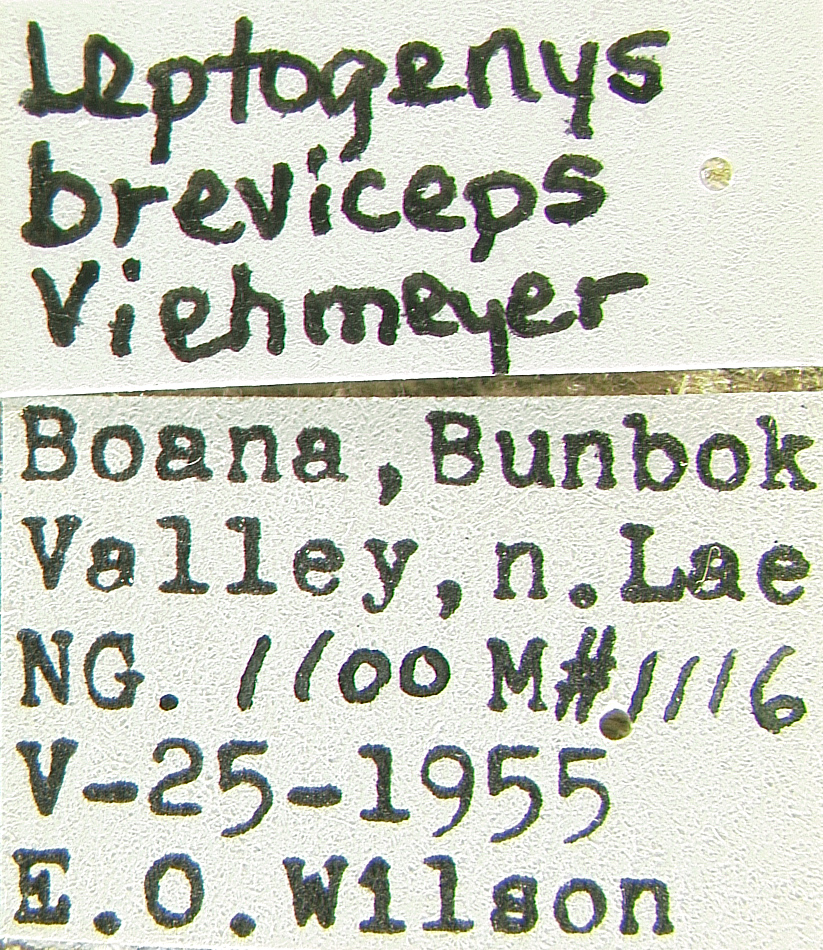 Leptogenys
breviceps
Viehmeyer
Boana, Bunbok
Valley, n. Lae
NG. 1100 M #1116
V-25-1955
E.O. Wilson